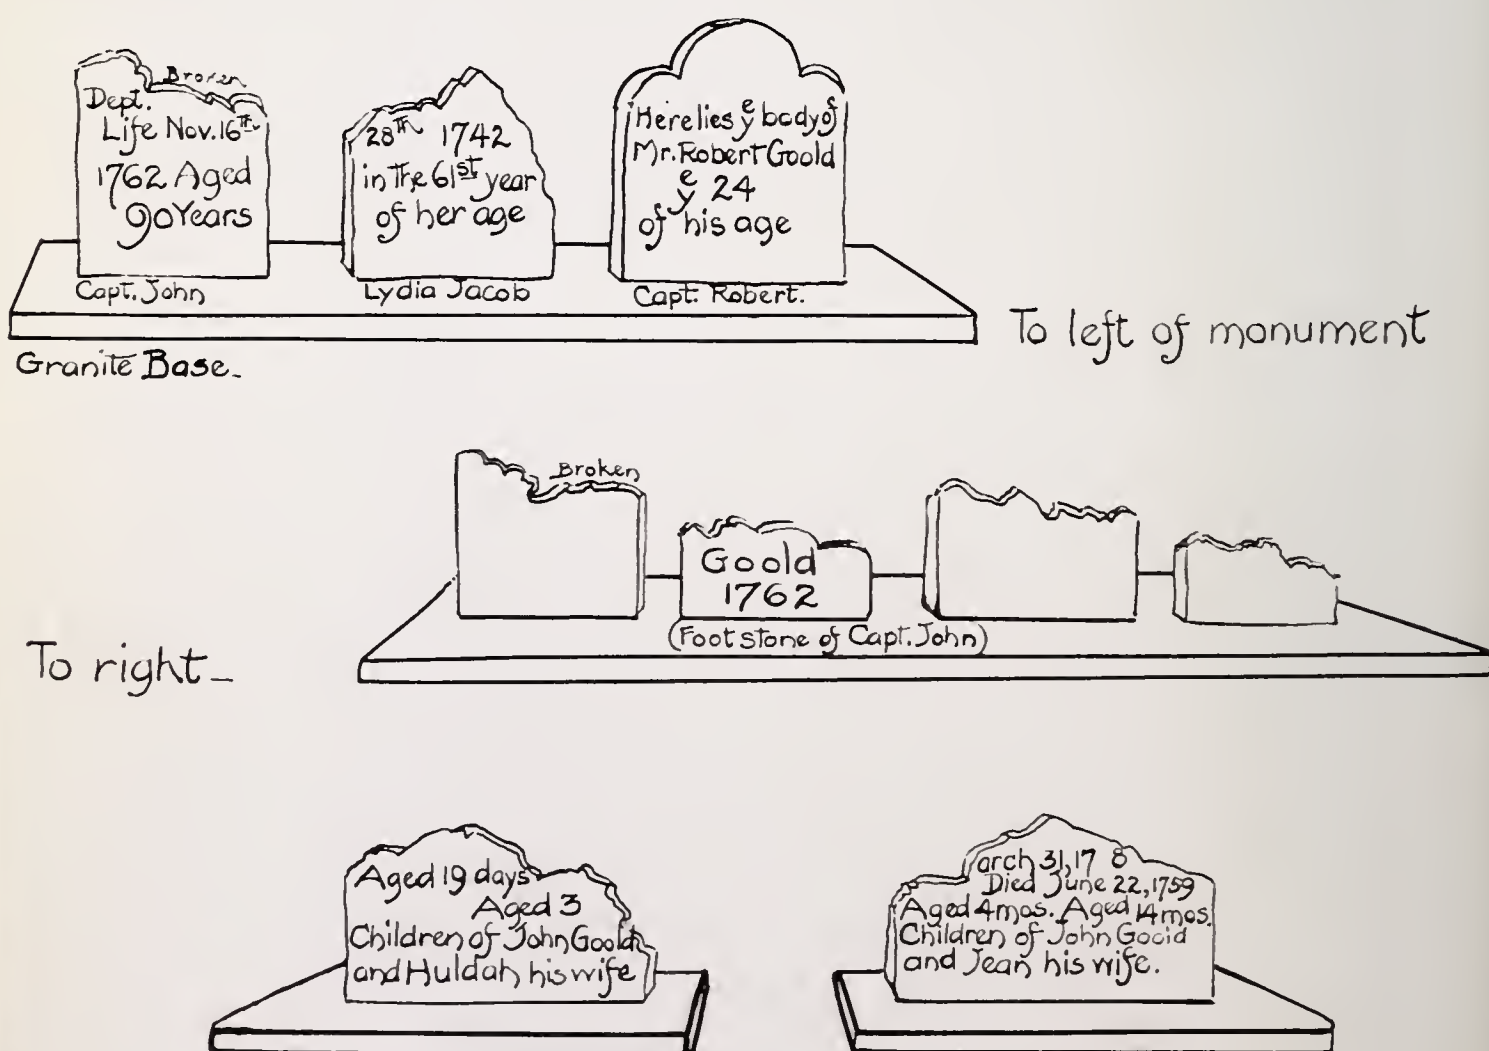 Broken
Dept.
Life Nov. 16th
1762 Aged
90 Years
Capt. John
28th 1742
in the 61st year
of her age
Lydia Jacob
Here lies ye body of
Mr. Robert Goold
ye 24
of his age
Capt. Robert.
Granite Base.
To left of monument
Broken
Goold
1762
(Foot stone of Capt. John)
To right
Aged 19 days
Aged 3
Children of John Goold
and Huldah his wife
arch 31, 17 8
Died June 22, 1759
Aged 4 mos. Aged 14 mos.
Children of John Goold
and Jean his wife.